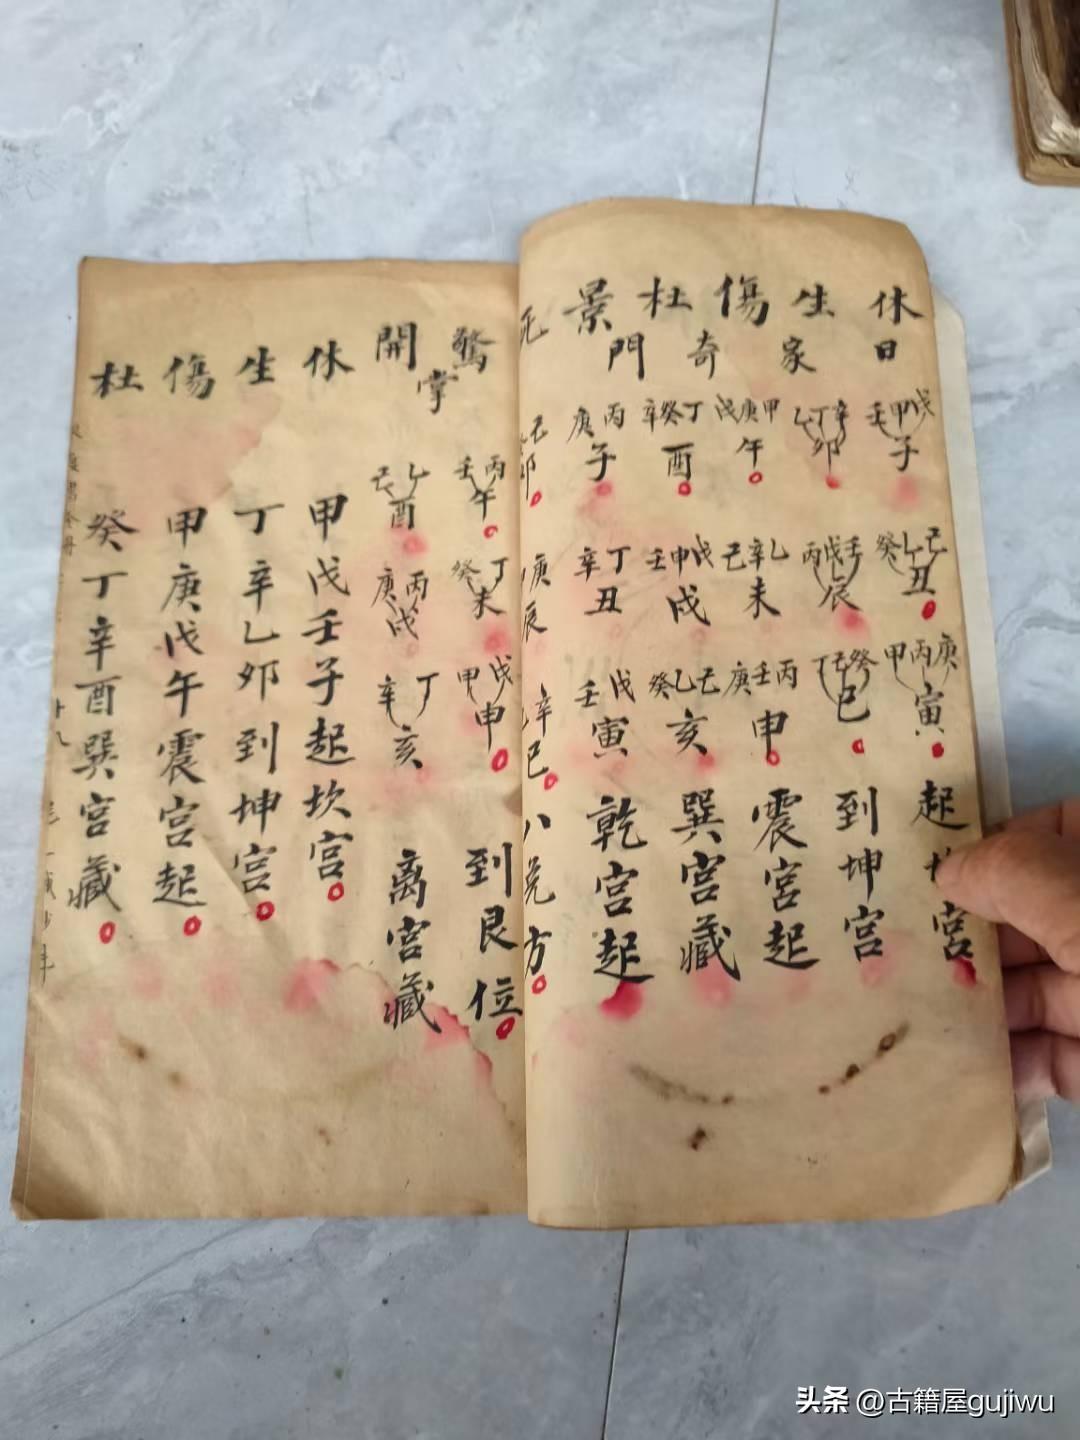 休 生 傷 杜 景 死
日 家 奇 門
戊甲壬子
己乙癸丑
庚丙甲寅
起坎宮
辛丁乙卯
壬戊丙辰
癸己丁巳
到坤宮
甲庚戊午
乙辛己未
丙壬庚申
震宮起
丁癸辛酉
戊甲壬戌
己乙癸亥
巽宮藏
丙庚子
丁辛丑
戊壬寅
乾宮起
己癸卯
庚辰
辛巳
八兌方
驚 開
掌
丙壬午
丁癸未
戊甲申
到艮位
乙己酉
丙庚戌
丁辛亥
離宮藏
休 生 傷 杜
甲戊壬子起坎宮
丁辛乙卯到坤宮
甲庚戊午震宮起
癸丁辛酉巽宮藏
头条 @古籍屋gujiwu